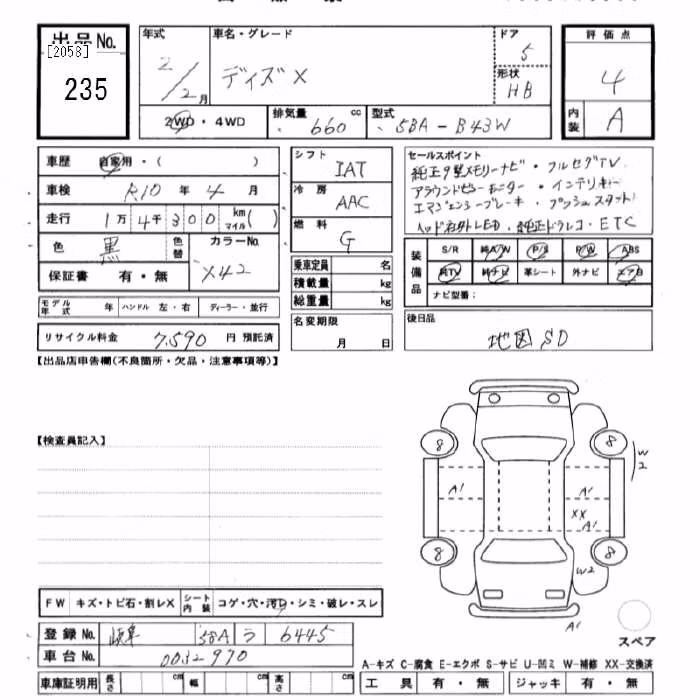 出品No.
[2053]
235
年式
2/2月
車名・グレード
デイズ X
ドア
5
形状
HB
評価点
4
内装
A
2WD・4WD
排気量 660 cc
型式 5BA-B43W
車歴 自家用・( )
車検 R10 年 4 月
走行 1万4千300 km マイル( )
色 黒 色替
カラーNo.
X42
保証書 有・無
モデル年式 年 ハンドル 左・右 ディーラー・並行
リサイクル料金 7,590 円 預託済
シフト
IAT
冷房
AAC
燃料
G
乗車定員 名
積載量 kg
総重量 kg
名変期限
月 日
セールスポイント
純正9型メモリーナビ・フルセグTV
アラウンドビューモニター・インテリキー
エマージェンシーブレーキ・プッシュスタート
ヘッドライトLED・純正ドラレコ・ETC
装備品
S/R 純A/W P/S P/W ABS
純TV 純ナビ 革シート 外ナビ エアB
ナビ型番:
後日品
地図SD
【出品店申告欄(不良箇所・欠品・注意事項等)】
【検査員記入】
8
8
W2
A1
A1
XX
A1
8
8
W2
A1
スペア
FW キズ・トビ石・割レX シート内装 コゲ・穴・汚レ・シミ・破レ・スレ
登録No. 岐阜 581 ラ 6445
車台No. 0032970
車庫証明用 長さ cm 幅 cm 高さ cm
A-キズ C-腐食 E-エクボ S-サビ U-凹ミ W-補修 XX-交換済
工具 有・無 ジャッキ 有・無